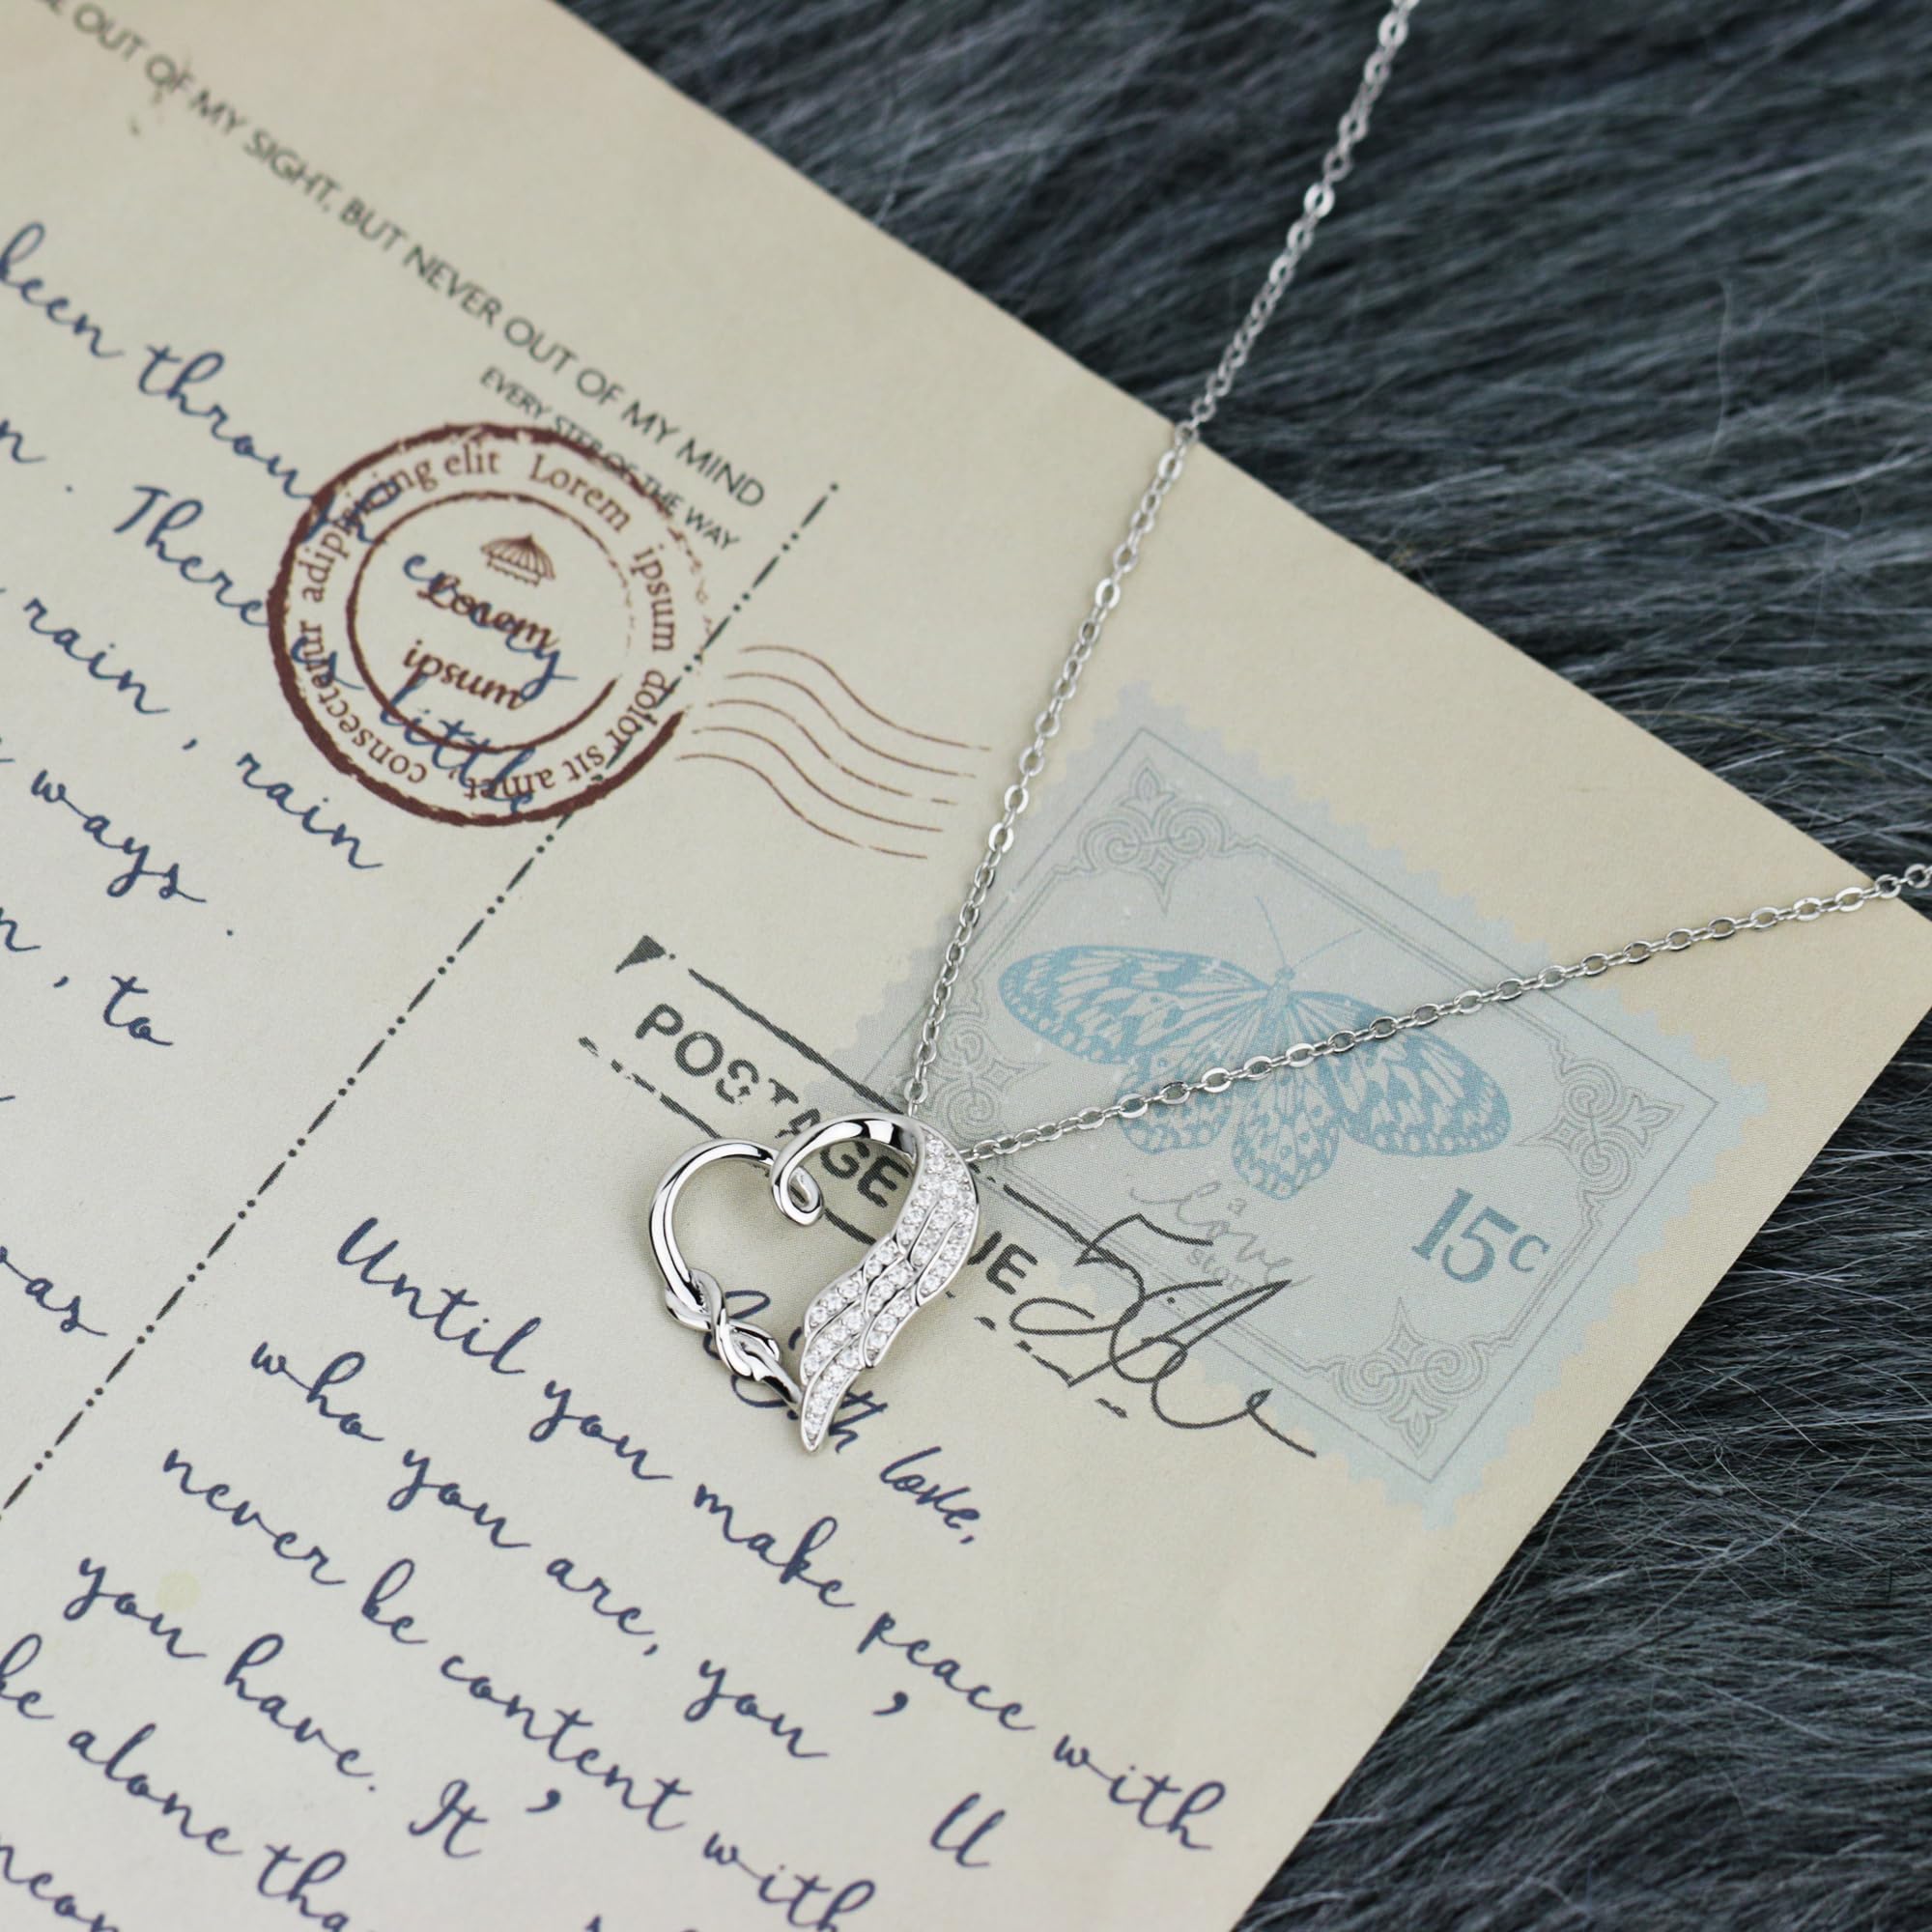 OUT OF MY SIGHT, BUT NEVER OUT OF MY MIND
EVERY STEP OF THE WAY
been through every
There is little
rain, rain
ways.
, to
Lorem ipsum dolor sit amet consectetur adipiscing elit
Lorem
ipsum
POSTAGE DUE
a
love
story
15c
with love,
Until you make peace with
who you are, you'll
never be content with
you have. It'
be alone tha